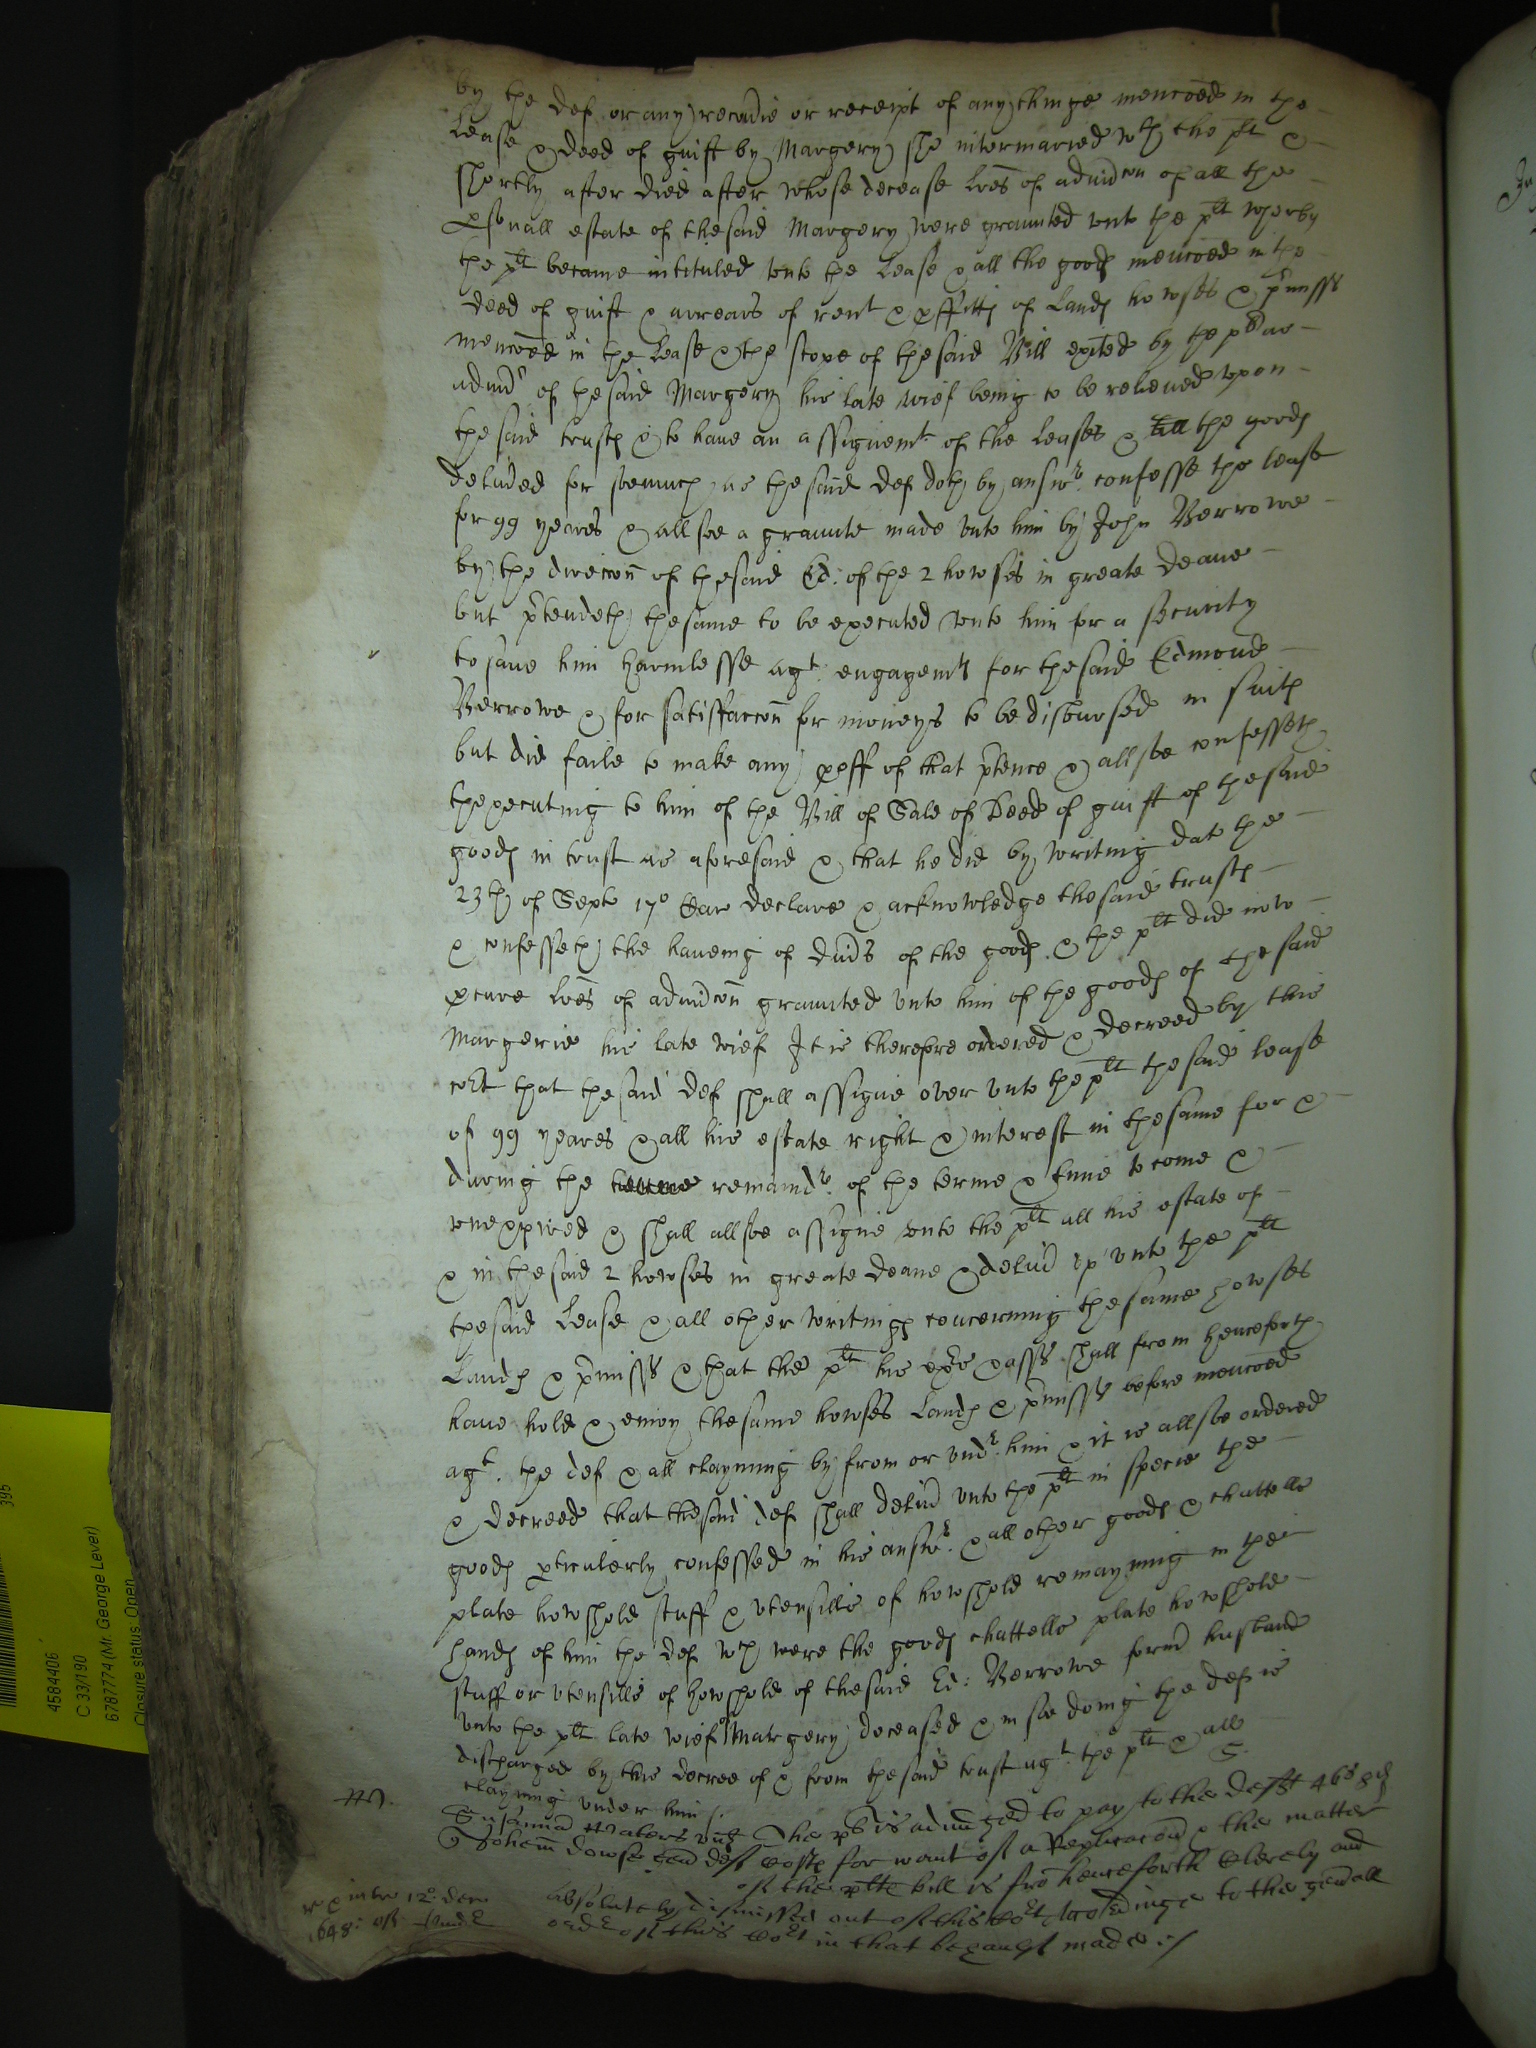 by the def or any recadie or receipt of any thinge mencoed in the
Lease & deed of guift by Margery she intermaried wth the plt &
shortly after died after whose decease Lres of admicon of all the
psonall estate of thesaid Margery were graunted vnto the plt wherby
the plt became intituled vnto the Lease & all the goods mencoed in the
deed of guift & arrears of rent & pffitts of Lands howses & pmisss
mencoed in the Lease & the scope of thesaid Bill exited by the plt as
admr of thesaid Margery his late wief being to be releived vpon
thesaid trusts & to have an assignemt of the Leases & all the goods
deliued for soemuch as thesaid def doth by answr confesse the lease
for 99 yeares & allsoe a graunte made vnto him by John Berrowe
by the direccon of thesaid Ed: of the 2 howses in greate Deane
but ptendeth thesame to be executed vnto him for a security
to save him harmlesse agt engagemts for thesaid Edmond
Berrowe & for satisfaccon for moneys to be disbursed in suits
but did faile to make any proff of that ptence & allsoe confesseth
thexecuting to him of the Bill of Sale of Deed of guift of thesaid
goods in trust as aforesaid & that he did by writing dat the
23th of Septr 17o Car declare & acknowledge thesaid trusts
& confesseth the haveing of divs of the goods & the plt did now
pcure Lres of admicon graunted vnto him of the goods of the said
Margerie his late wief It is therefore ordered & decreed by this
cort that thesaid def shall assigne over vnto the plt thesaid lease
of 99 yeares & all his estate right & interest in thesame for &
during the remaindr of the terme & time to come &
vnexpired & shall allsoe assigne vnto the plt all his estate of
& in thesaid 2 howses in greate Deane & deliu vp vnto the plt
thesaid Lease & all other writings concerning thesame howses
Lands & pmisss & that the plt his exrs & asss shall from henceforth
have hold & enioy thesame howses Lands & pmisss before mencoed
agt the def & all clayming by from or vndr him & it is allsoe ordered
& decreed that thesaid def shall deliu vnto the plt in specie the
goods pticulerly confessed in his answr & all other goods & chattells
plate howshold stuff & vtensills of howshold remayning in the
hands of him the def wch were the goods chattells plate howshold
stuff or vtensills of howshold of thesaid Ed: Berrowe form husband
vnto the plt late wief Margery deceased & in soe doing the def is
discharged by this decree of & from thesaid trust agt the plt & all
clayming under him
Susanna Waters vid The pl is adiudged to pay to the deft 46s 8d
Johem Dowse gen deft costs for want of a Replicacon & the matter
of the plts bill is fro henceforth cleerely and
absolutely dismissed out of this Cort according to the gerall
ordr of this Cort in that behaulf made
intr 12o dec
1648
4584406
C 33/190
6787774 (Mr. George Lever)
Closure status Open
395